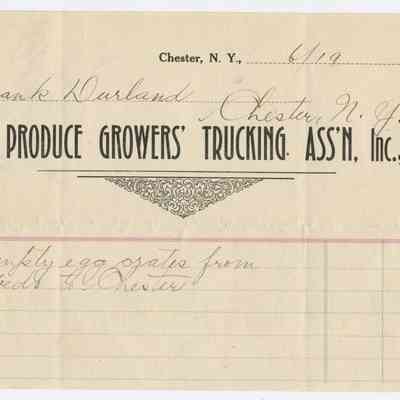 Chester, N. Y., 6/19
ank Durland
Chester, N. Y.
PRODUCE GROWERS' TRUCKING. ASS'N, Inc.,
mpty egg crates from
to Chester